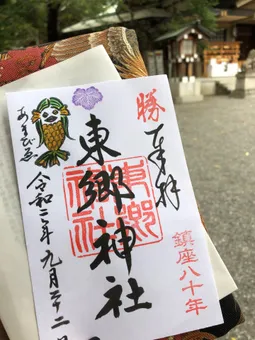 勝
奉拝
東郷神社
東郷神社
鎮座八十年
あまびゑ
令和二年九月二十二日